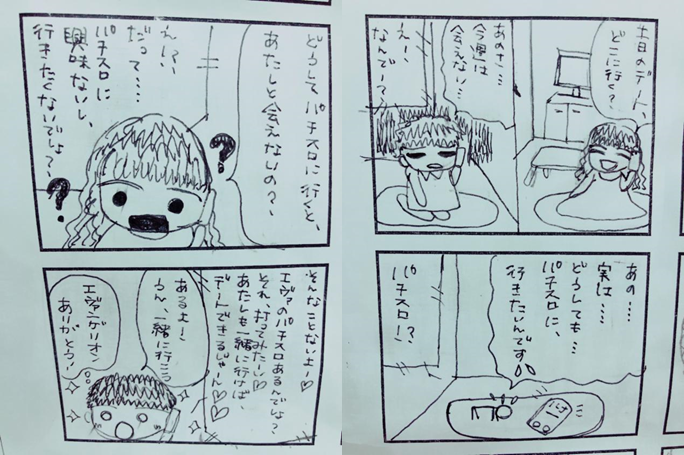 土日のデート、
どこに行く？
あのさ…
今週は
会えない…
えー、
なんでー？？
あの……
実は……
どうしても…
パチスロに、
行きたいんです
パチスロ！？
どうしてパチスロに行くと、
あたしと会えないの？、
え！？、
だって……
パチスロに
興味ないし、
行きたくないでしょ？、
？
？
そんなことないよー♡
エヴァのパチスロあるんでしょ？
それ、打ってみたーい♡
あたしも一緒に行けば、
デートできるじゃん♡♡
あるよー！
うん、一緒に行こ
エヴァンゲリオン
ありがとう！